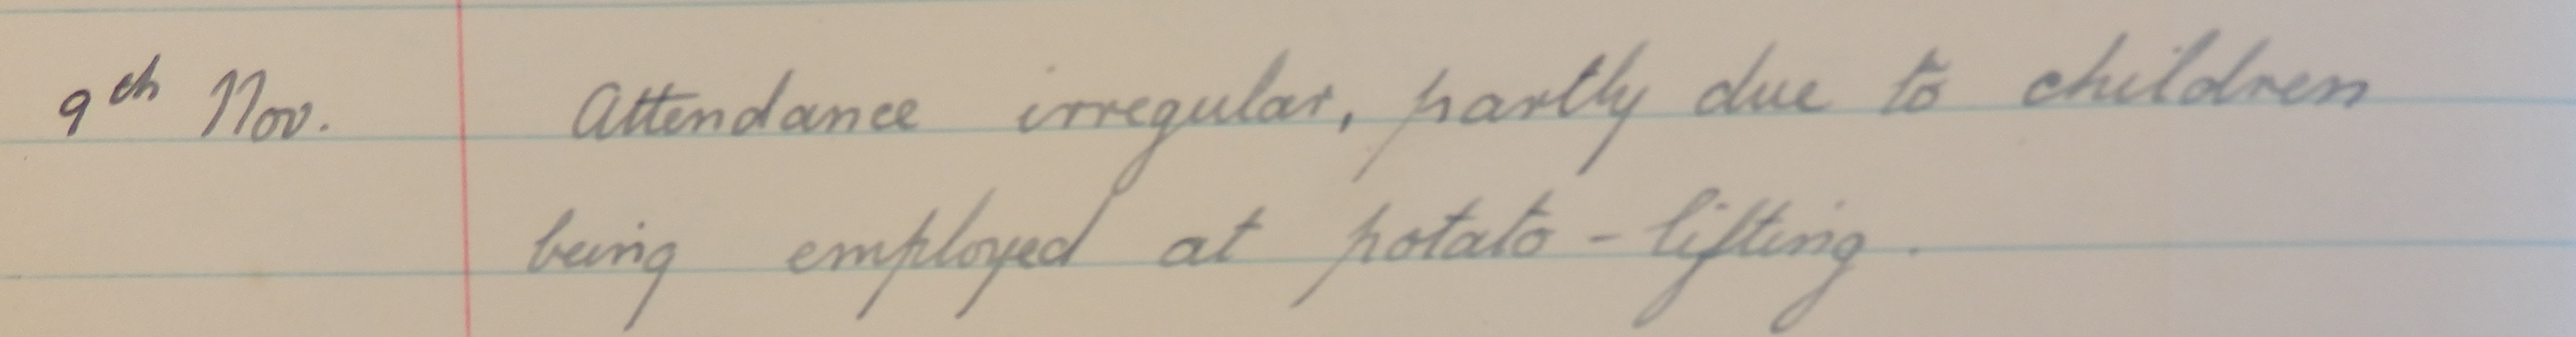 9th Nov. Attendance irregular, partly due to children
being employed at potato-lifting.